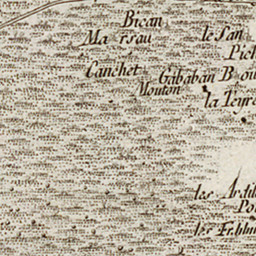 Bican
Marsau
le San
Pich
Canchet
Gababan
Bou
Mouton
la Teyre
les Ardil
Po